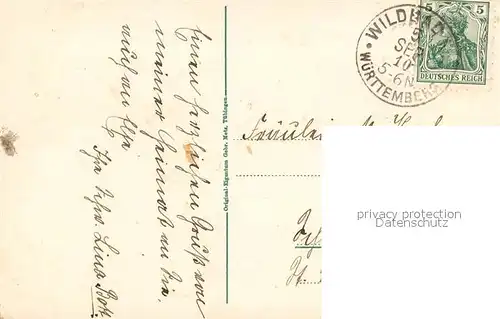 Einen herzlichen Gruß von
meiner Heimat an Sie,
auch an Elsa
Ihre Schw. Lina Bott.
Original-Eigentum Gebr. Metz, Tübingen.
WILDBAD
SEP
10
5-6N
WÜRTTEMBERG
5 5
DEUTSCHES REICH
Fräulein
privacy protection
Datenschutz